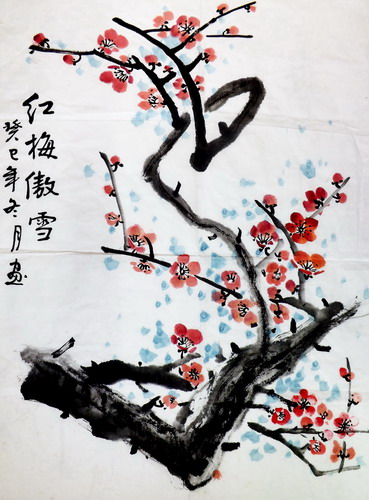 红梅傲雪
癸巳年冬月画